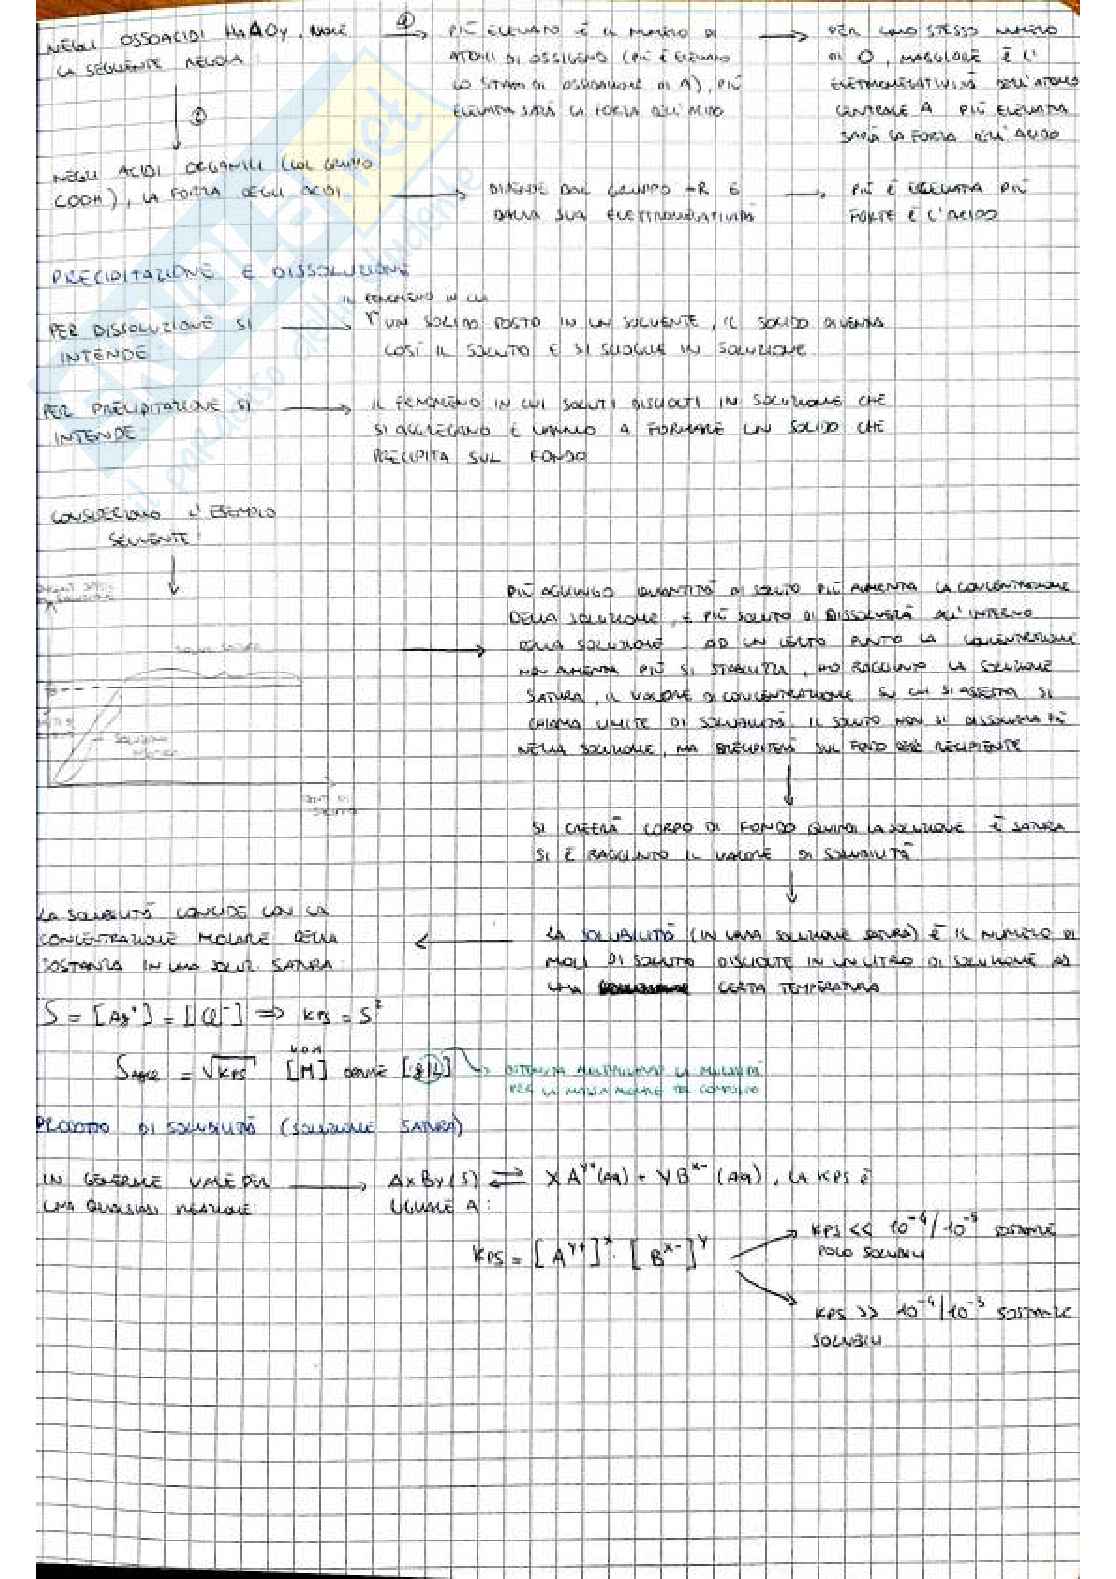 NEGLI OSSOACIDI HxAOy, VALE
LA SEGUENTE REGOLA:
①
PIÙ ELEVATO È IL NUMERO DI
ATOMI DI OSSIGENO (PIÙ È ELEVATO
LO STATO DI OSSIDAZIONE DI A), PIÙ
ELEVATA SARÀ LA FORZA DELL'ACIDO
PER UNO STESSO NUMERO
DI O, MAGGIORE È L'
ELETTRONEGATIVITÀ DELL'ATOMO
CENTRALE A PIÙ ELEVATA
SARÀ LA FORZA DELL'ACIDO
②
NEGLI ACIDI ORGANICI (COL GRUPPO
COOH), LA FORZA DEGLI ACIDI
DIPENDE DAL GRUPPO -R E
DALLA SUA ELETTRONEGATIVITÀ
PIÙ È ELEVATA PIÙ
FORTE È L'ACIDO
PRECIPITAZIONE E DISSOLUZIONE
PER DISSOLUZIONE SI
INTENDE
IL FENOMENO IN CUI
UN SOLIDO POSTO IN UN SOLVENTE, IL SOLIDO DIVENTA
COSÌ IL SOLUTO E SI SCIOGLIE IN SOLUZIONE
PER PRECIPITAZIONE SI
INTENDE
IL FENOMENO IN CUI SOLUTI DISCIOLTI IN SOLUZIONE CHE
SI AGGREGANO E VANNO A FORMARE UN SOLIDO CHE
PRECIPITA SUL FONDO
CONSIDERIAMO L'ESEMPIO
SEGUENTE:
SOLUZ. SATURA
SOLUZIONE
PIÙ AGGIUNGO QUANTITÀ DI SOLUTO PIÙ AUMENTA LA CONCENTRAZIONE
DELLA SOLUZIONE, E PIÙ SOLUTO DI DISSOLVERÀ ALL'INTERNO
DELLA SOLUZIONE. AD UN CERTO PUNTO LA CONCENTRAZIONE
NON AUMENTA PIÙ SI STABILIZZA, HO RAGGIUNTO LA SOLUZIONE
SATURA, IL VALORE DI CONCENTRAZIONE SU CUI SI ASSESTA SI
CHIAMA LIMITE DI SOLUBILITÀ. IL SOLUTO NON SI DISSOLVERÀ PIÙ
NELLA SOLUZIONE, MA PRECIPITERÀ SUL FONDO DEL RECIPIENTE
SI CREERÀ CORPO DI FONDO QUINDI LA SOLUZIONE È SATURA
SI È RAGGIUNTO IL VALORE DI SOLUBILITÀ
LA SOLUBILITÀ (IN UNA SOLUZIONE SATURA) È IL NUMERO DI
MOLI DI SOLUTO DISCIOLTE IN UN LITRO DI SOLUZIONE AD
UNA CERTA TEMPERATURA
LA SOLUBILITÀ COINCIDE CON LA
CONCENTRAZIONE MOLARE DELLA
SOSTANZA IN UNA SOLUZ. SATURA:
S = [Ag⁺] = [Cl⁻] => KPS = S²
S AgCl = √KPS [M] OPPURE [g/L]
OTTENUTA MOLTIPLICANDO LA MOLARITÀ
PER LA MASSA MOLARE DEL COMPOSTO
PRODOTTO DI SOLUBILITÀ (SOLUZIONE SATURA)
IN GENERALE VALE PER
UNA QUALSIASI REAZIONE:
AxBy(s) ⇌ XA^y+(aq) + YB^x-(aq), LA KPS È
UGUALE A:
KPS = [A^y+]^x · [B^x-]^y
KPS << 10⁻⁴/10⁻⁵ SOSTANZE
POCO SOLUBILI
KPS >> 10⁻⁴/10⁻⁵ SOSTANZE
SOLUBILI